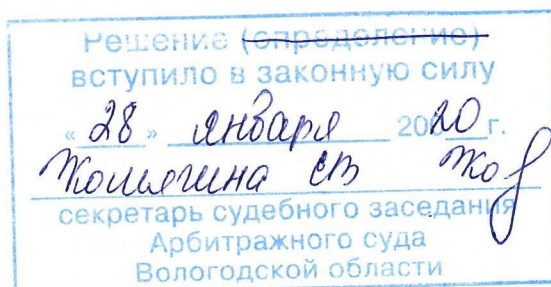 Решение (определение)
вступило в законную силу
« 28 » января 2020 г.
СВ
секретарь судебного заседания
Арбитражного суда
Вологодской области